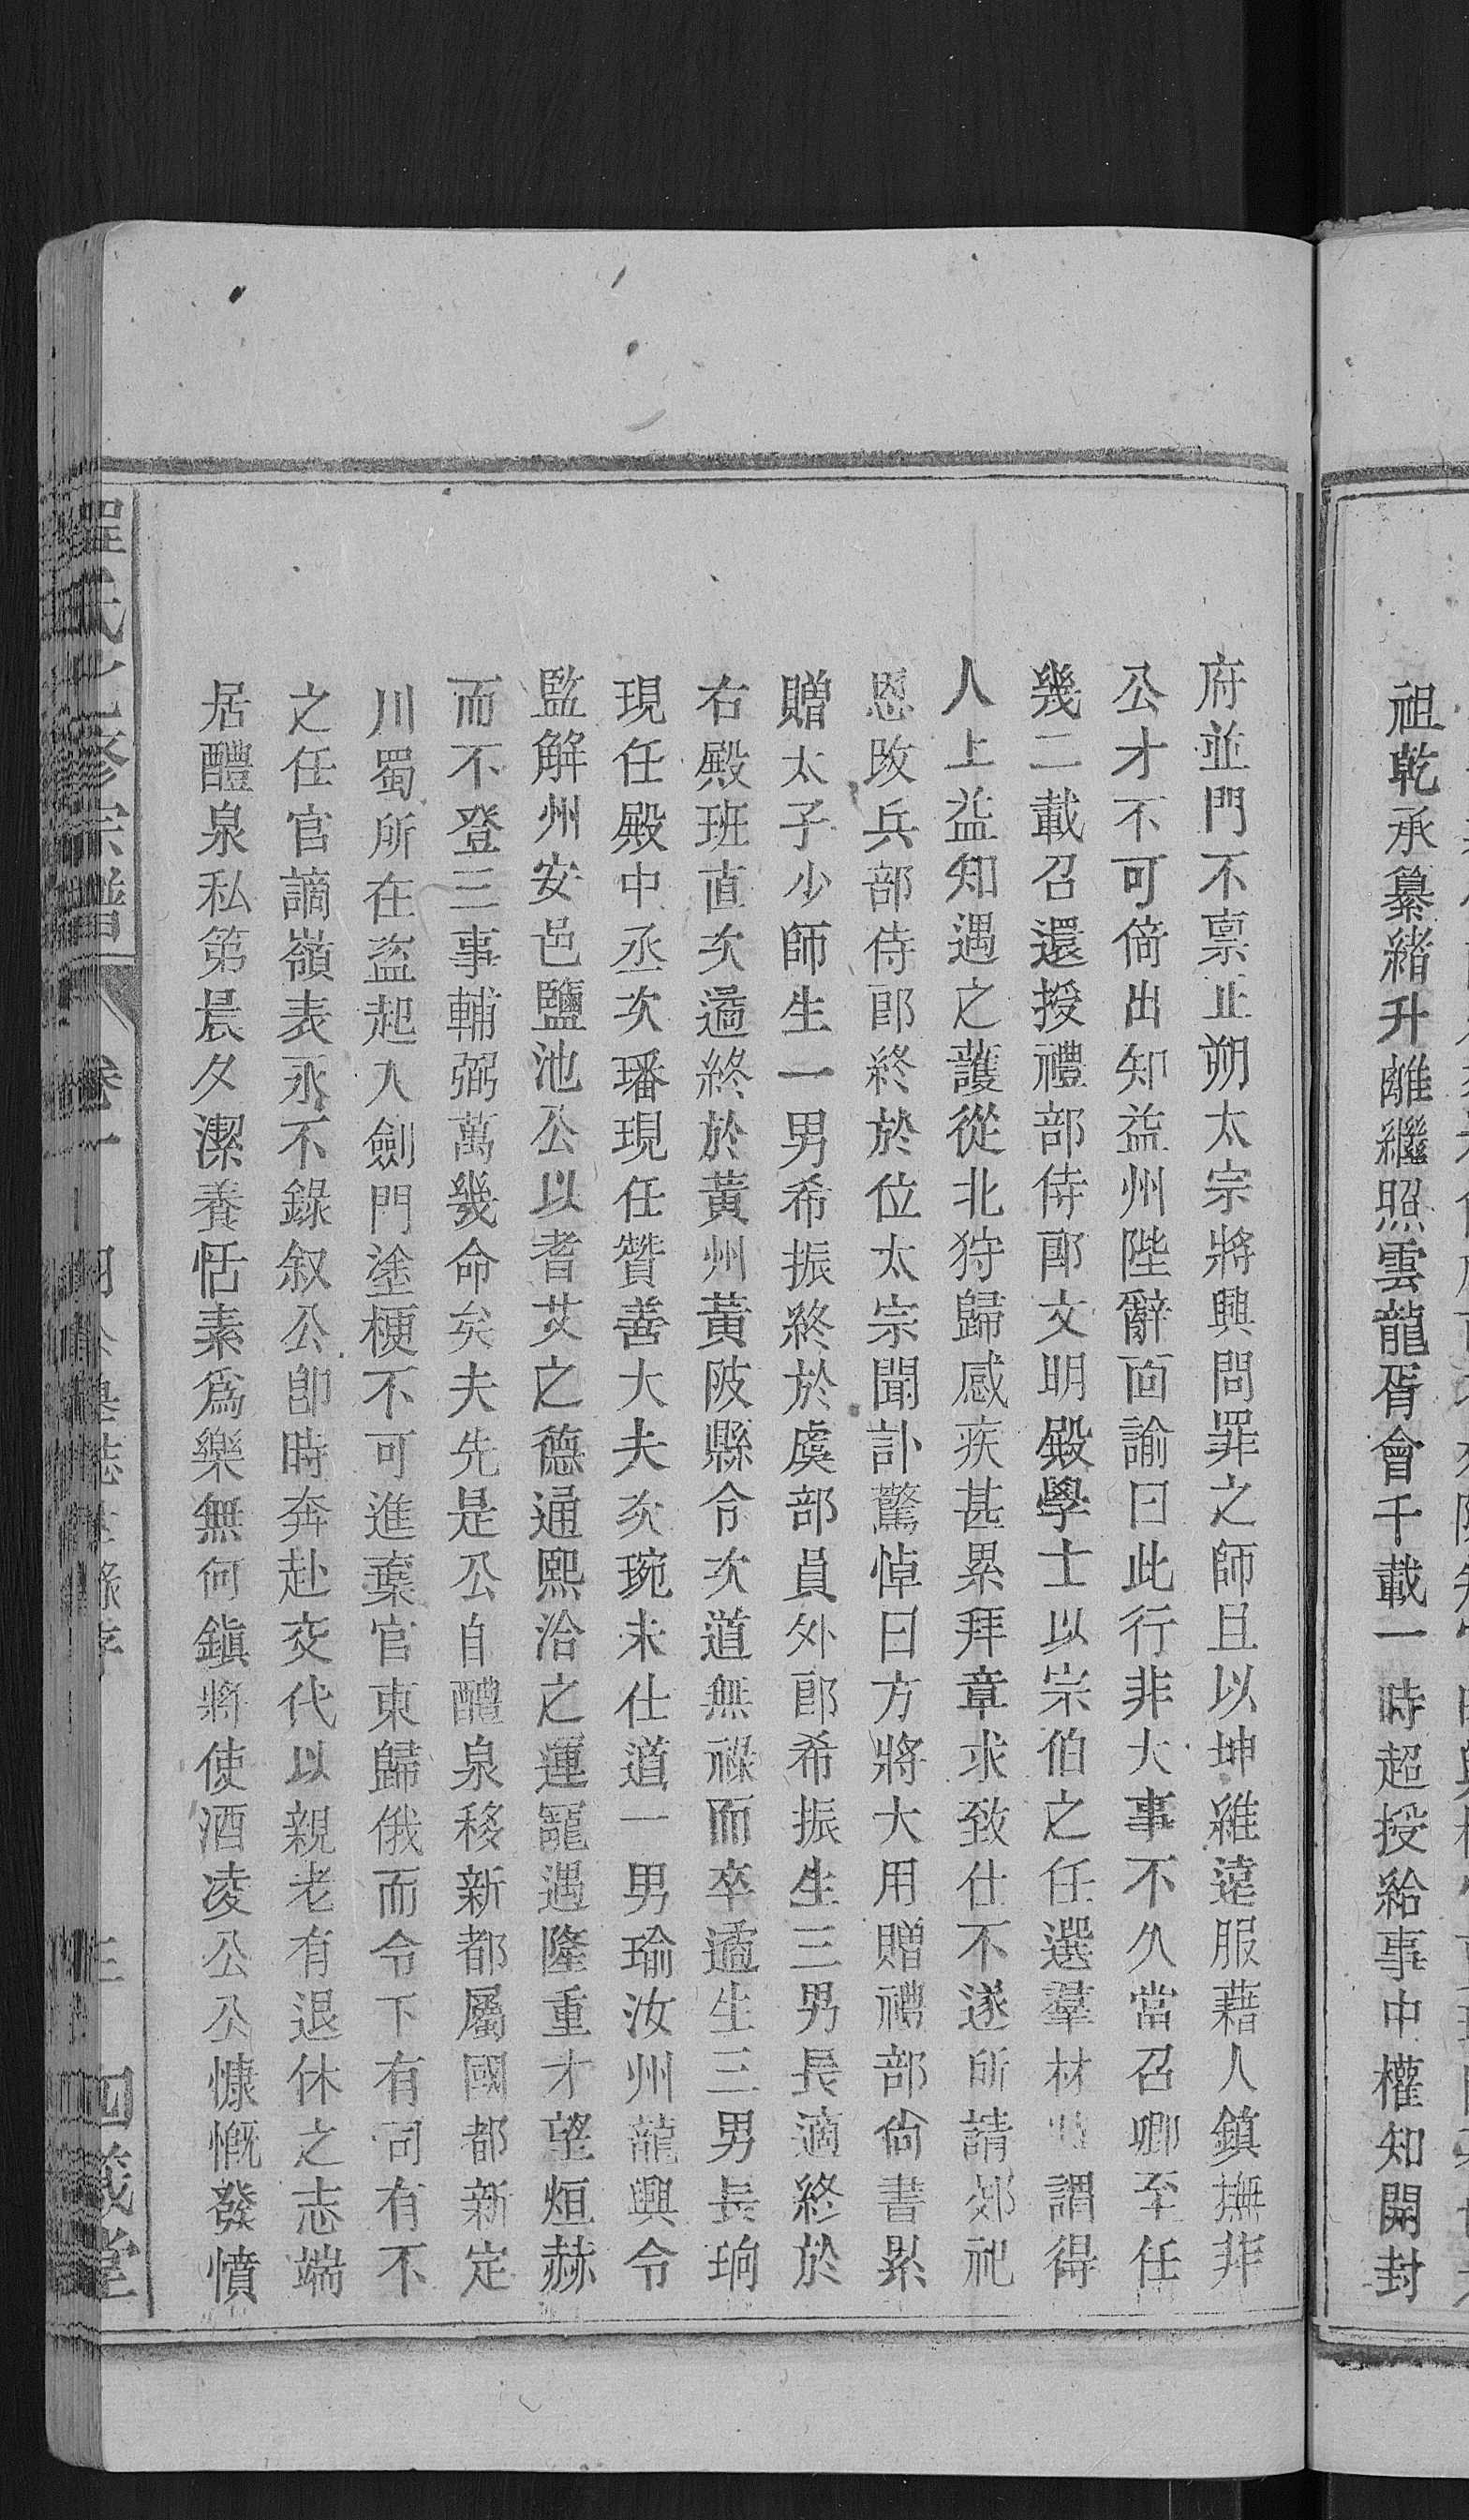 祖乾承纂緒升離繼照雲龍胥會千載一時超授給事中權知開封
府並門不禀正朔太宗將興問罪之師且以坤維遠服藉人鎮撫非
公才不可倚出知益州陛辭面諭曰此行非大事不久當召卿至任
幾二載召還授禮部侍郎文明殿學士以宗伯之任選羣材 謂得
人上益知遇之護從北狩歸感疾甚累拜章求致仕不遂所請郊祀
恩改兵部侍郎終於位太宗聞訃驚悼曰方將大用贈禮部尙書累
贈太子少師生一男希振終於虞部員外郎希振生三男長適終於
右殿班直次遹終於黃州黃陂縣令次道無祿而卒遹生三男長珦
現任殿中丞次璠現任贊善大夫次琬未仕道一男瑜汝州龍興令
監解州安邑鹽池公以耆艾之德通熙洽之運寵遇隆重才望烜赫
而不登三事輔弼萬幾命矣夫先是公自醴泉移新都屬國都新定
川蜀所在盜起入劍門塗梗不可進棄官東歸俄而令下有司有不
之任官謫嶺表永不錄叙公卽時奔赴交代以親老有退休之志端
居醴泉私第晨夕潔養恬素爲樂無何鎭將使酒凌公公慷慨發憤
程氏 修宗譜
卷一
三
四箴堂